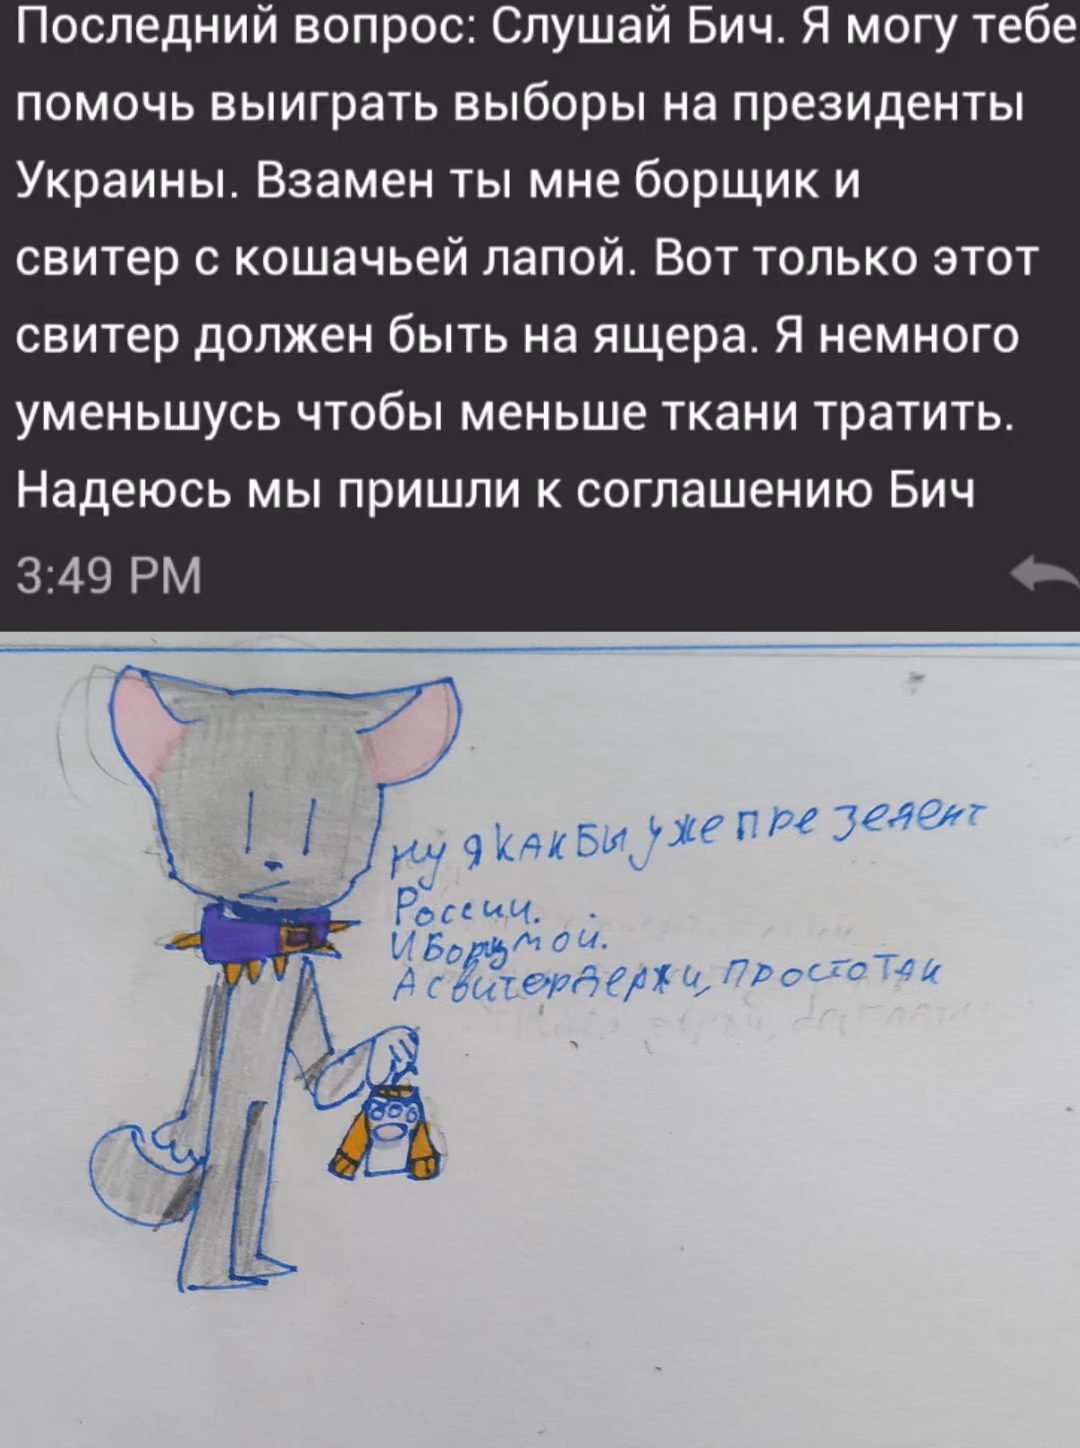 Последний вопрос: Слушай Бич. Я могу тебе
помочь выиграть выборы на президенты
Украины. Взамен ты мне борщик и
свитер с кошачьей лапой. Вот только этот
свитер должен быть на ящера. Я немного
уменьшусь чтобы меньше ткани тратить.
Надеюсь мы пришли к соглашению Бич
3:49 PM
ну я как бы уже презедент
России.
И Борщ мой.
А свитер держи, просто так